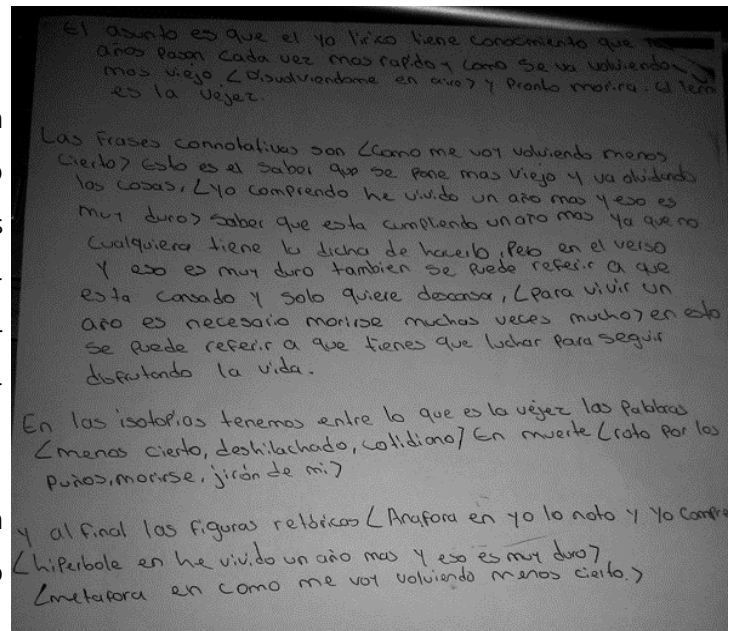 El asunto es que el yo lirico tiene conocimiento que
años pasan cada vez mas rapido y como se va volviendo
mas viejo <Disolviendome en aire> y Pronto morira. El tem
es la vejez.
Las Frases connotativas son <Como me voy volviendo menos
Cierto> Esto es el saber que se pone mas Viejo y va olvidando
las cosas, <yo comprendo he vivido un año mas y eso es
muy duro> saber que esta cumpliendo un año mas ya que no
cualquiera tiene la dicha de hacerlo, Pero en el verso
Y eso es muy duro tambien se Puede referir a que
esta cansado y solo quiere descansar, <para vivir un
año es necesario morirse muchas veces mucho> en esto
se puede referir a que tienes que luchar para seguir
disfrutando la vida.
En las isotopias tenemos entre lo que es la vejez las Palabras
<menos cierto, deshilachado, cotidiano> En muerte <roto por los
Puños, morirse, jirón de mi>
y al final las figuras retóricas <Anafora en yo lo noto y Yo Compre
<hiperbole en he vivido un año mas y eso es muy duro>
<metafora en como me voy volviendo menos cierto.>